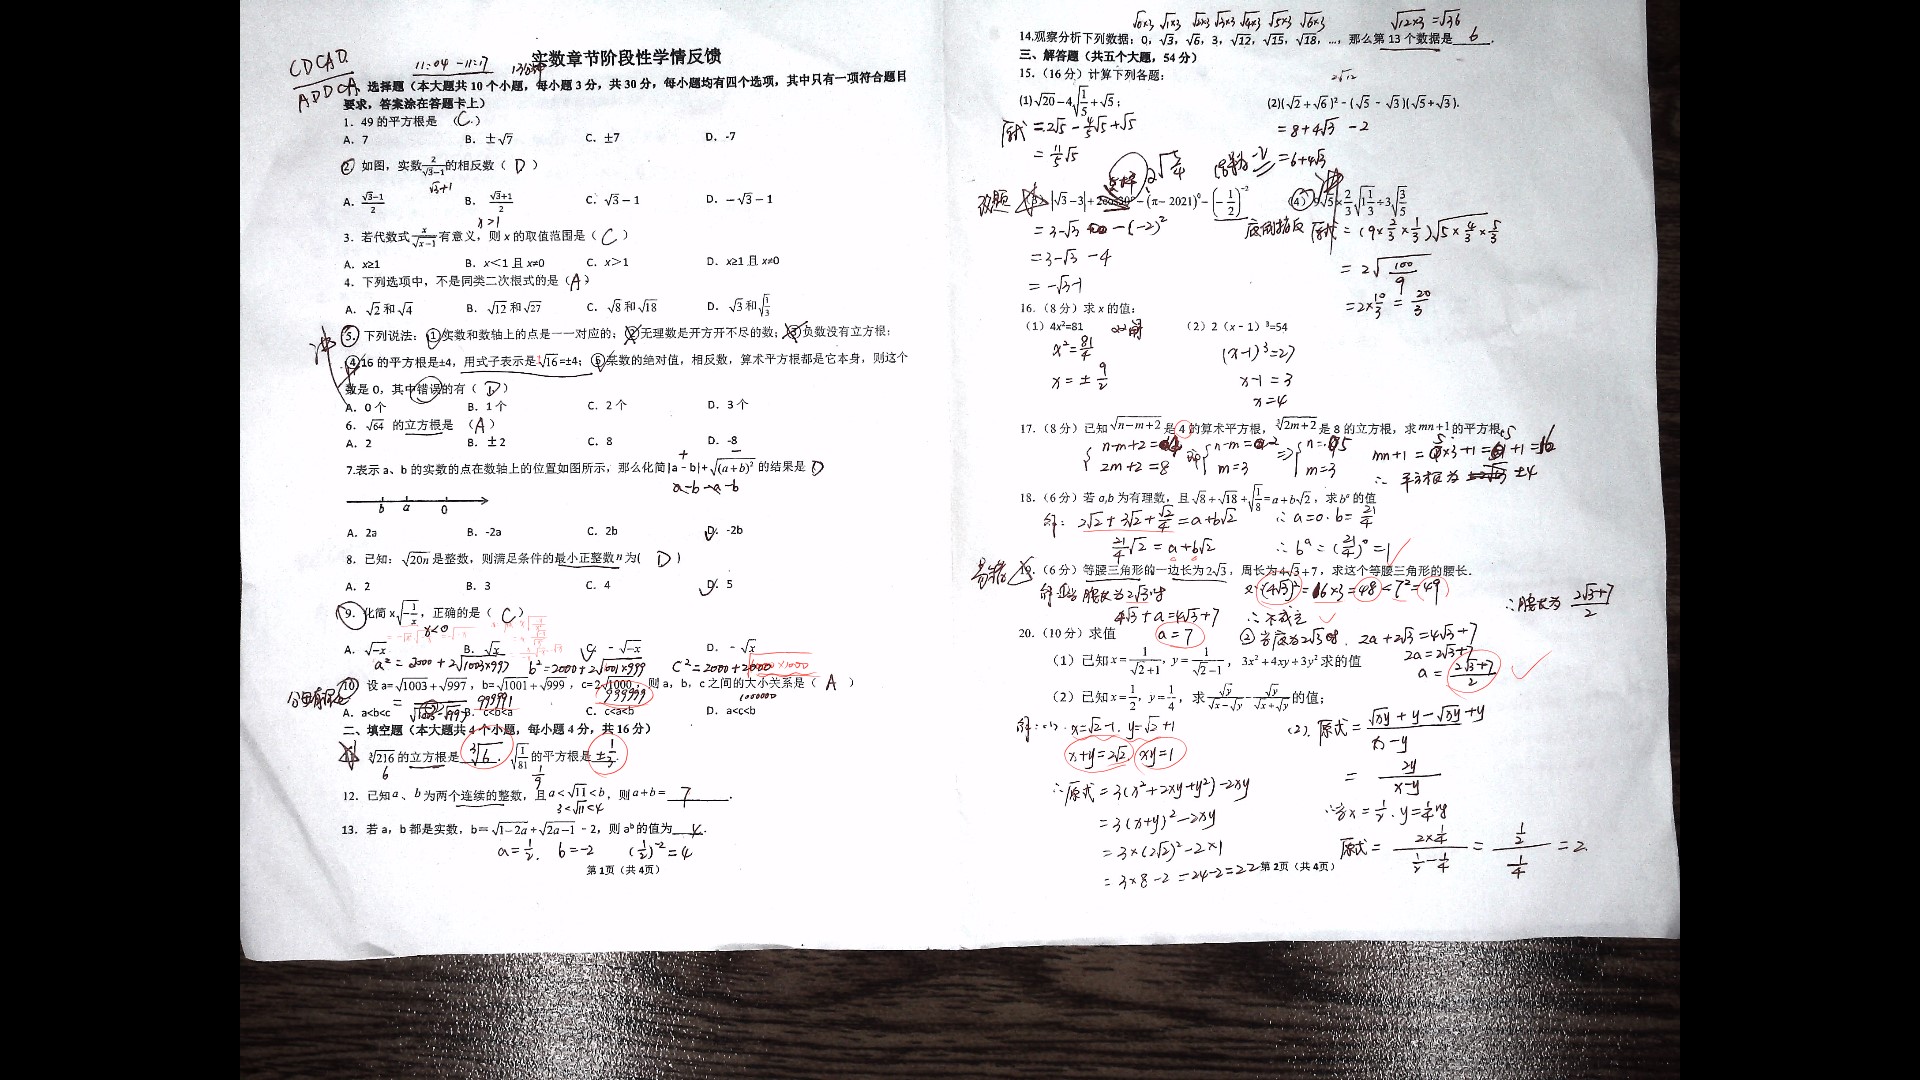 CDCAD
ADDCA
11:04 -11:17
实数章节阶段性学情反馈
选择题（本大题共 10 个小题，每小题 3 分，共 30 分，每小题均有四个选项，其中只有一项符合题目
要求，答案涂在答题卡上）
1．49 的平方根是 （C.）
A．7 B．±√7 C．±7 D．-7
②．如图，实数2/(√3−1)的相反数（ D ）
√3+1
A．(√3−1)/2 B．(√3+1)/2 C．√3－1 D．－√3－1
x>1
3．若代数式x/√(x−1)有意义，则 x 的取值范围是（ C ）
A．x≥1 B．x＜1 且 x≠0 C．x＞1 D．x≥1 且 x≠0
4．下列选项中，不是同类二次根式的是（A）
A．√2 和√4 B．√12 和√27 C．√8 和√18 D．√3 和√(1/3)
5．下列说法：①实数和数轴上的点是一一对应的；②无理数是开方开不尽的数；③负数没有立方根；
④16 的平方根是±4，用式子表示是√16=±4；⑤某数的绝对值，相反数，算术平方根都是它本身，则这个
数是 0，其中错误的有（ D ）
A．0 个 B．1 个 C．2 个 D．3 个
6．√64 的立方根是 （A）
A．2 B．±2 C．8 D．-8
7.表示 a、b 的实数的点在数轴上的位置如图所示，那么化简|a－b|+√(a+b)² 的结果是 D
a-b-a-b
b a 0
A．2a B．-2a C．2b D．-2b
8．已知：√20n 是整数，则满足条件的最小正整数 n 为( D )
A．2 B．3 C．4 D．5
9．化简 x√(−1/x)，正确的是（ C ）
x<0
A．√−x B．√x C．－√−x D．－√x
a²=2000+2√1003×997 b²=2000+2√1001×999 c²=2000+2000
10．设 a=√1003+√997，b=√1001+√999，c=2√1000，则 a，b，c 之间的大小关系是（ A ）
999991 999999 1000000
A．a<b<c B．c<b<a C．c<a<b D．a<c<b
二、填空题（本大题共 4 个小题，每小题 4 分，共 16 分）
11．∛216 的立方根是 ∛6 ．√(1/81) 的平方根是 ±1/3 ．
6 1/9
12．已知 a、b 为两个连续的整数，且 a<√11<b，则 a+b= 7 ．
3<√11<4
13．若 a，b 都是实数，b=√(1−2a)+√(2a−1)－2，则 aᵇ 的值为 4 ．
a=1/2. b=-2 (1/2)⁻²=4
第 1页（共 4页）
√0×3 √1×3 √2×3 √3×3 √4×3 √5×3 √6×3 √12×3 =√36
14.观察分析下列数据：0，√3，√6，3，√12，√15，√18，…，那么第 13 个数据是 6 ．
三、解答题（共五个大题，54 分）
15．（16 分）计算下列各题；
2√12
(1)√20－4√(1/5)+√5； (2)(√2+√6)²－(√5－√3)(√5+√3).
原式=2√5-4/5√5+√5 =8+4√3 -2
=11/5√5 =6+4√3
改题 (3) |√3－3|+2cos30°－(π－2021)⁰－(－1/2)⁻² (4) 9√5×2/3√(1 1/3)÷3√(3/5)
=3-√3 -(-2)² 原式=(9×2/3×1/3)√(5×4/3×5/3)
=3-√3 -4 =2√(100/9)
=-√3-1 =2×10/3=20/3
16．（8 分）求 x 的值：
（1）4x²=81 （2）2（x－1）³=54
x²=81/4 (x-1)³=27
x=±9/2 x-1=3
x=4
17．（8 分）已知√(n−m+2)是 4 的算术平方根，∛(2m+2)是 8 的立方根，求 mn+1 的平方根.
n-m+2=4 n-m=2 n=5 mn+1=5×3+1=16
2m+2=8 m=3 m=3 ∴平方根为±4
18．（6 分）若 a,b 为有理数，且√8+√18+√(1/8)=a+b√2，求 bᵃ 的值
解：2√2+3√2+√2/4=a+b√2 ∴a=0.b=21/4
21/4√2=a+b√2 ∴bᵃ=(21/4)⁰=1
易错 19．（6 分）等腰三角形的一边长为 2√3，周长为 4√3+7，求这个等腰三角形的腰长．
解：①当腰长为2√3时 又∵(4√3)²=16×3=48<7²=49
4√3+a=4√3+7 ∴不成立 ∴腰长为(2√3+7)/2
a=7 ②当底为2√3时. 2a+2√3=4√3+7
20．（10 分）求值 2a=2√3+7
（1）已知 x=1/(√2+1)，y=1/(√2−1)，3x²+4xy+3y² 求的值 a=(2√3+7)/2
（2）已知 x=1/2，y=1/4，求√y/(√x−√y)－√y/(√x+√y)的值；
解：(1). x=√2-1. y=√2+1 (2). 原式=(√xy+y-√xy+y)/(x-y)
x+y=2√2. xy=1 =2y/(x-y)
∴原式=3(x²+2xy+y²)-2xy ∴当x=1/2.y=1/4时
=3(x+y)²-2xy 原式=(2×1/4)/(1/2-1/4)=(1/2)/(1/4)=2.
=3×(2√2)²-2×1
=3×8-2=24-2=22
第 2页（共 4页）